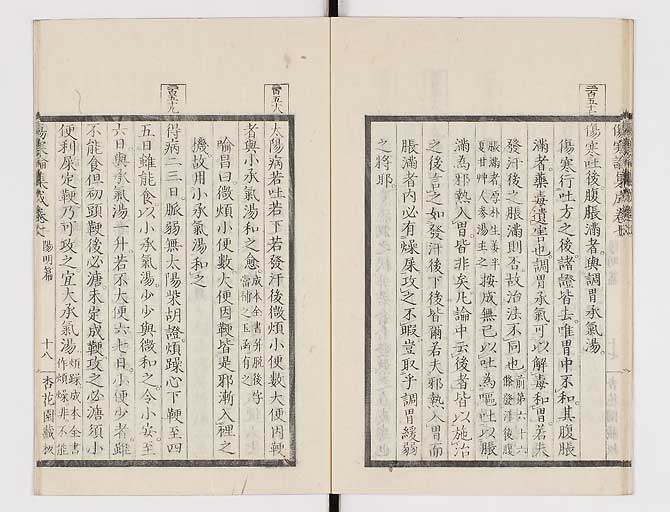 二百五十七
傷寒吐後腹脹滿者與調胃承氣湯
傷寒行吐方之後諸證皆去唯胃中不和其腹脹
滿者藥毒遺害也調胃承氣可以解毒和胃若夫
發汗後之脹滿則否故治法不同也
前第六十六條發汗後腹
脹滿者厚朴生姜半
夏甘艸人參湯主之
按成無己以吐為嘔吐以脹
滿為邪熱入胃皆非矣凡論中云後者皆以施治
之後言之如發汗後下後皆爾若夫邪熱入胃而
脹滿者內必有燥屎攻之不暇豈取乎調胃緩弱
之將耶
二百五十八
太陽病若吐若下若發汗後微煩小便數大便因鞕
者與小承氣湯和之愈
成本全書并脫後字
當補之玉函有之
喻昌曰微煩小便數大便因鞕皆是邪漸入裡之
機故用小承氣湯和之
二百五十九
得病二三日脈弱無太陽柴胡證煩躁心下鞕至四
五日雖能食以小承氣湯少少與微和之令小安至
六日與承氣湯一升若不大便六七日小便少者雖
不能食但初頭鞕後必溏未定成鞕攻之必溏須小
便利屎定鞕乃可攻之宜大承氣湯
煩躁成本全書
作煩燥非不能
傷寒論集成卷
陽明篇
十八
杏花園藏板